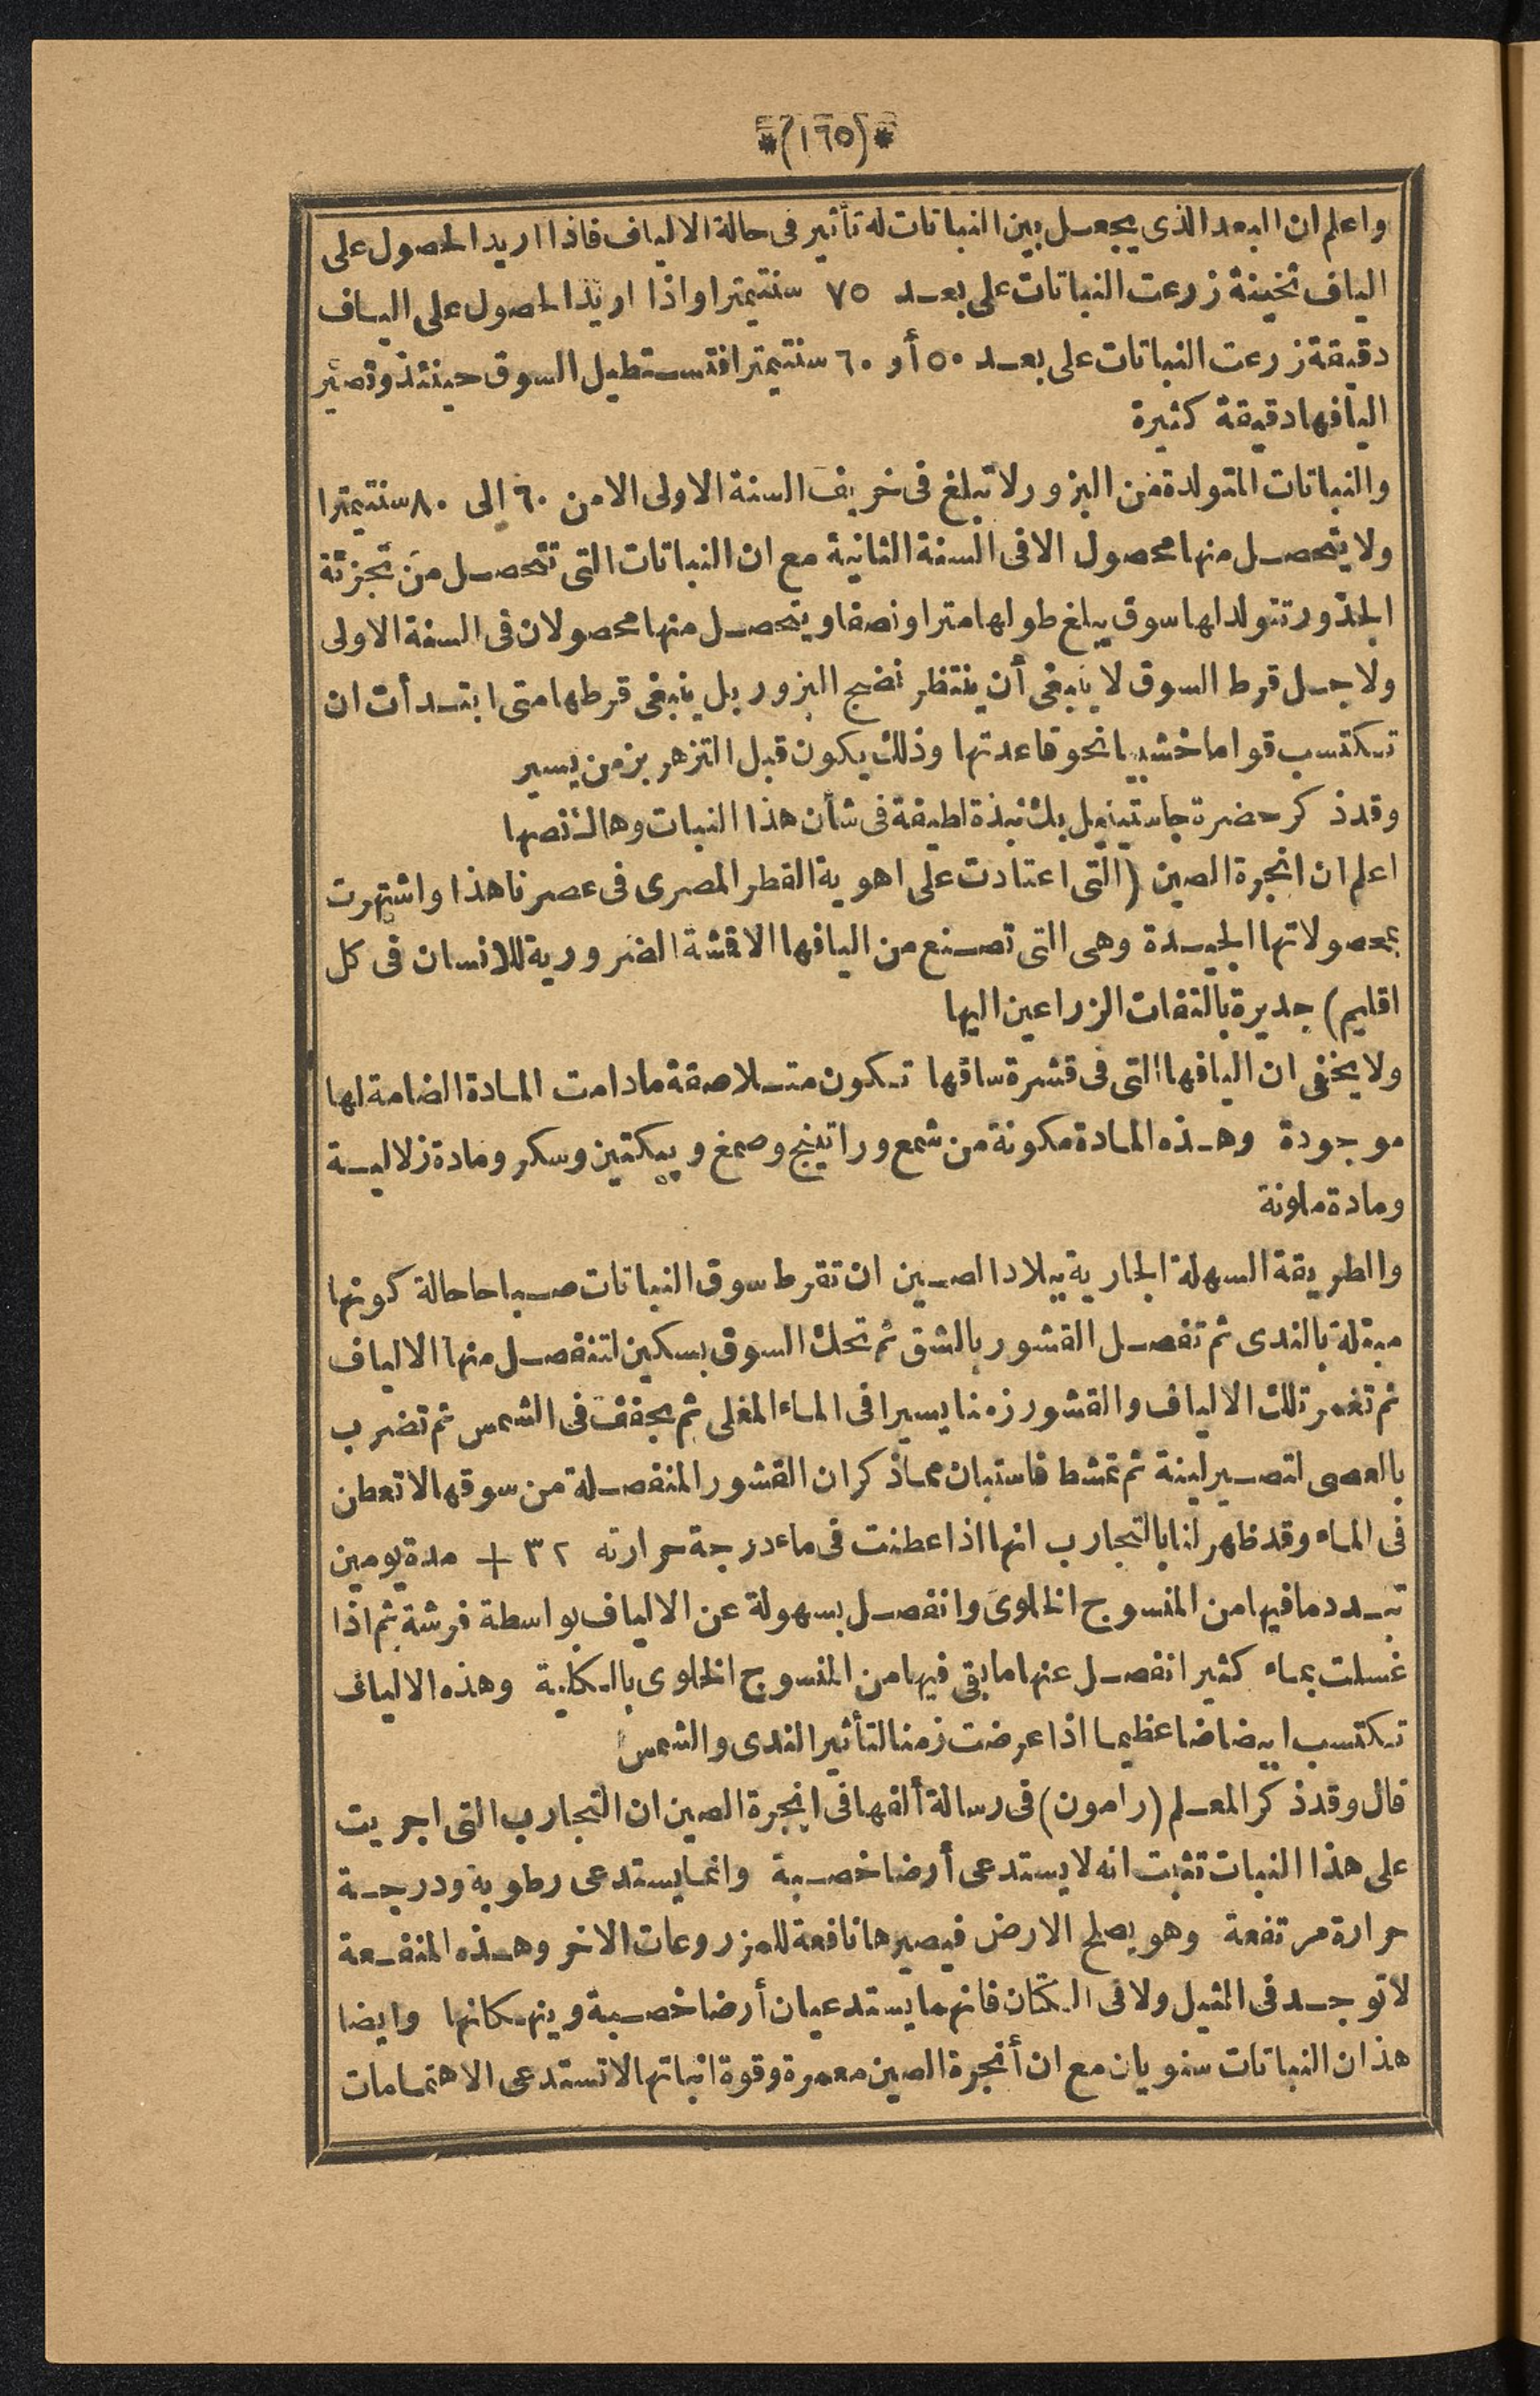 *(١٦٥)*
واعلم ان البعد الذى يجعل بين النباتات له تأثير فى حالة الالياف فاذا اريد الحصول على
الياف ثخينة زرعت النباتات على بعد ٧٥ سنتيمترا واذا اريد الحصول على الياف
دقيقة زرعت النباتات على بعد ٥٠ أو ٦٠ سنتيمترا فتستطيل السوق حينئذ وتصير
اليافها دقيقة كثيرة
والنباتات المتولدة من البزور لا تبلغ فى خريف السنة الاولى الا من ٦٠ إلى ٨٠ سنتيمترا
ولا يتحصل منها محصول الا فى السنة الثانية مع ان النباتات التى تتحصل من تجزئة
الجذور تتولد لها سوق يبلغ طولها مترا ونصفا ويتحصل منها محصولان فى السنة الاولى
ولاجل قرط السوق لا ينبغى أن ينتظر نضج البزور بل ينبغى قرطها متى ابتدأت ان
تكتسب قواما خشبيا نحو قاعدتها وذلك يكون قبل التزهر بزمن يسير
وقد ذكر حضرة جاستينيل بك نبذة لطيفة فى شأن هذا النبات وهاك نصها
اعلم ان انجرة الصين (التى اعتادت على اهوية القطر المصرى فى عصرنا هذا واشتهرت
بمحصولاتها الجيدة وهى التى تصنع من اليافها الاقشة الضرورية للانسان فى كل
اقليم) جديرة بالتفات الزراعين اليها
ولا يخفى ان اليافها التى فى قشرة ساقها تكون متلاصقة مادامت المادة الضامة لها
موجودة وهذه المادة مكونة من شمع وراتينج وصمغ وپيكتين وسكر ومادة زلالية
ومادة ملونة
والطريقة السهلة الجارية ببلاد الصين ان تقرط سوق النباتات صباحا حالة كونها
مبتلة بالندى ثم تفصل القشور بالشق ثم تحك السوق بسكين لتنفصل منها الالياف
ثم تغمر تلك الالياف والقشور زمنا يسيرا فى الماء المغلى ثم يجفف فى الشمس ثم تضرب
بالعصى لتصير لينة ثم تمشط فاستبان مما ذكر ان القشور المنفصلة من سوقها لا تعطن
فى الماء وقد ظهر لنا بالتجارب انها اذا عطنت فى ماء درجة حرارته ٣٢ + مدة يومين
تبدد ما فيها من المنسوج الخلوى وانفصل بسهولة عن الالياف بواسطة فرشة ثم اذا
غسلت بماء كثير انفصل عنها ما بقى فيها من المنسوج الخلوى بالكلية وهذه الالياف
تكتسب ابيضاضا عظيما اذا عرضت زمنا لتأثير الندى والشمس
قال وقد ذكر المعلم (رامون) فى رسالة ألفها فى انجرة الصين ان التجارب التى اجريت
على هذا النبات تثبت انه لا يستدعى أرضا خصبة وانما يستدعى رطوبة ودرجة
حرارة مرتفعة وهو يصلح الارض فيصيرها نافعة للمزروعات الاخر وهذه المنفعة
لا توجد فى التيل ولا فى الكتان فانهما يستدعيان أرضا خصبة وينهكانها وايضا
هذان النباتات سنويان مع ان أنجرة الصين معمرة وقوة انباتها لا تستدعى الاهتمامات